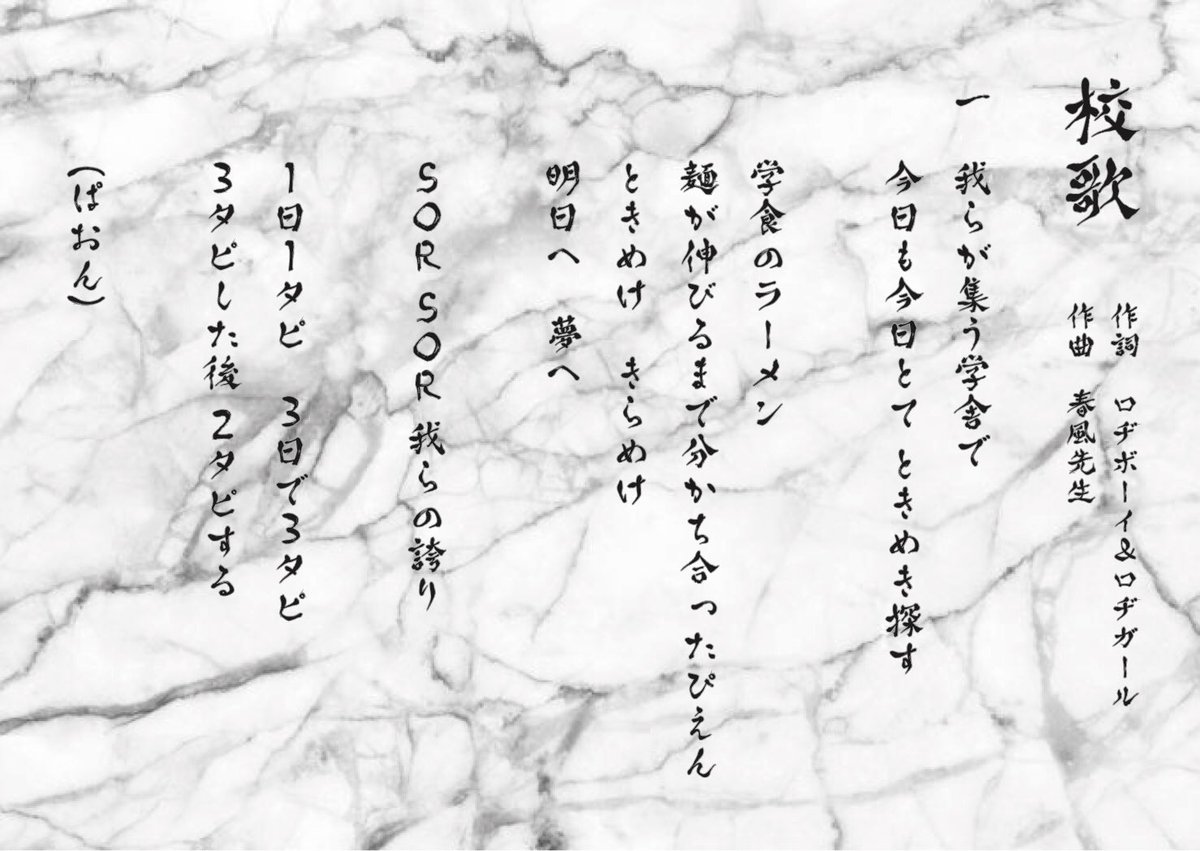 校歌
作詞 ロヂボーイ&ロヂガール
作曲 春風先生
一
我らが集う学舎で
今日も今日とて ときめき探す
学食のラーメン
麺が伸びるまで分かち合ったぴえん
ときめけ きらめけ
明日へ 夢へ
SOR SOR 我らの誇り
1日1タピ 3日で3タピ
3タピした後 2タピする
(ぱおん)